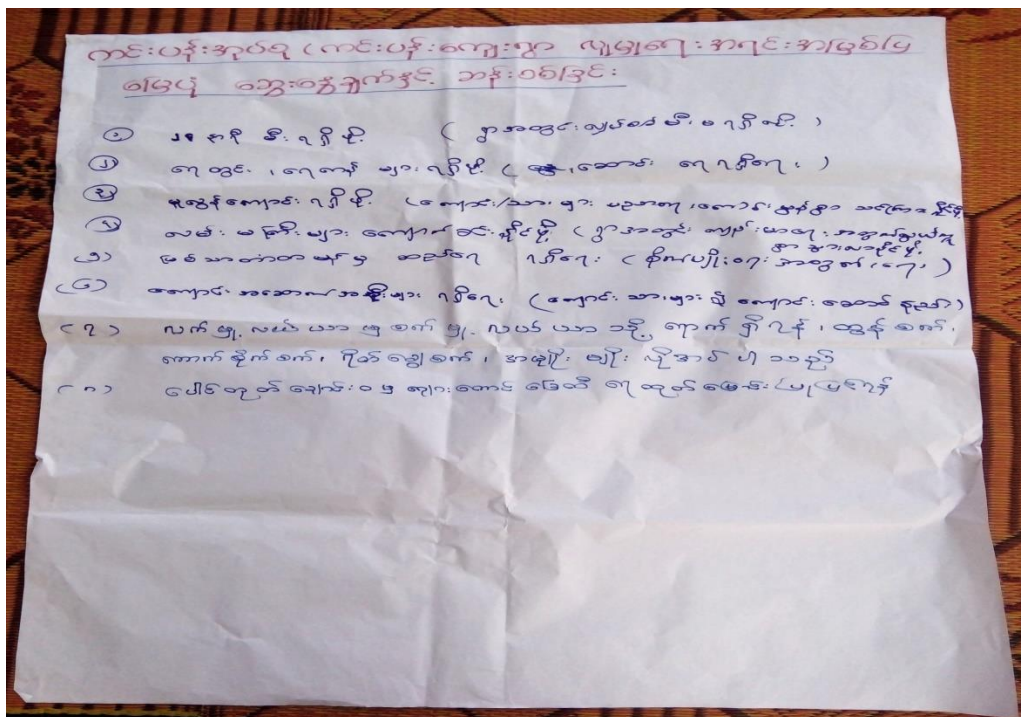 ကင်းပွန်းအုပ်စု (ကင်းပွန်းကျေးရွာ လူမှုရေး အရင်းအမြစ်ပြ
မြေပုံ ဆွေးနွေးချက်နှင့် ဆန်းစစ်ခြင်း
၁ ၂၄ နာရီ မီး ရရှိဖို့ ( ရွာအတွင်း လျှပ်စစ်မီး မရရှိလို့ )
၂ ရေတွင်း ၊ ရေကန် များ ရရှိဖို့ ( ဆောင်း ရေ ရရှိရေး )
၃ မူလွန်ကျောင်း ရရှိဖို့ (ကျောင်းသား များ ပညာရေး ကောင်းမွန်စွာ သင်ကြားနိုင်ဖို့
၄ လမ်း မကြီးများ ကျောက်ခင်းနိုင်ဖို့ ( ရွာအတွင်း ကျန်းမာရေး အလွယ်တကူ
သွားလာနိုင်ဖို့
(၅) မြစ်သာတံတာမန်မှ ဆည်ရေ ရရှိရေး ( စိုက်ပျိုးရေး အတွက် ရေ )
(၆) ကျောင်း အဆောက်အဦးများ ရရှိရေး (ကျောင်း သားများ ၍ ကျောင်း ဆောင် နည်း)
(၇) လက်မှု့ လယ်ယာ မှ စက်မှု့ လယ်ယာ သို့ ရောက်ရှိရန် ၊ ထွန်စက် ၊
ကောက်စိုက်စက် ၊ ရိတ်ခြွေစက် ၊ အမျိုးမျိုး လိုအပ် ပါ သည်
(၈) ပေါင်တုတ်ချောင်း ဝ မှ ကျားတောင် ခြေထိ ရေထုတ်မြောင်း ပြုပြင်ရန်